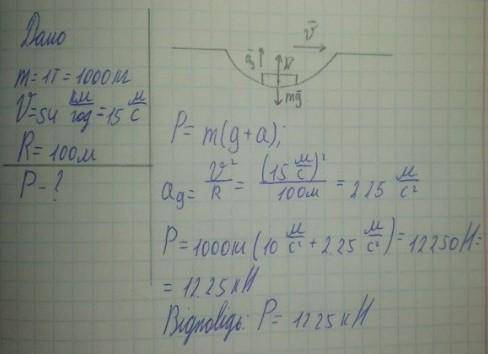 Дано
m = 1т = 1000кг
V = 54 км/год = 15 м/с
R = 100м
P - ?
V̄
ā N̄
mḡ
P = m(g + a);
aд = V²/R = (15 м/с)²/100м = 2.25 м/с²
P = 1000кг (10 м/с² + 2.25 м/с²) = 12250 Н =
= 12.25 кН
Відповідь: P = 12.25 кН